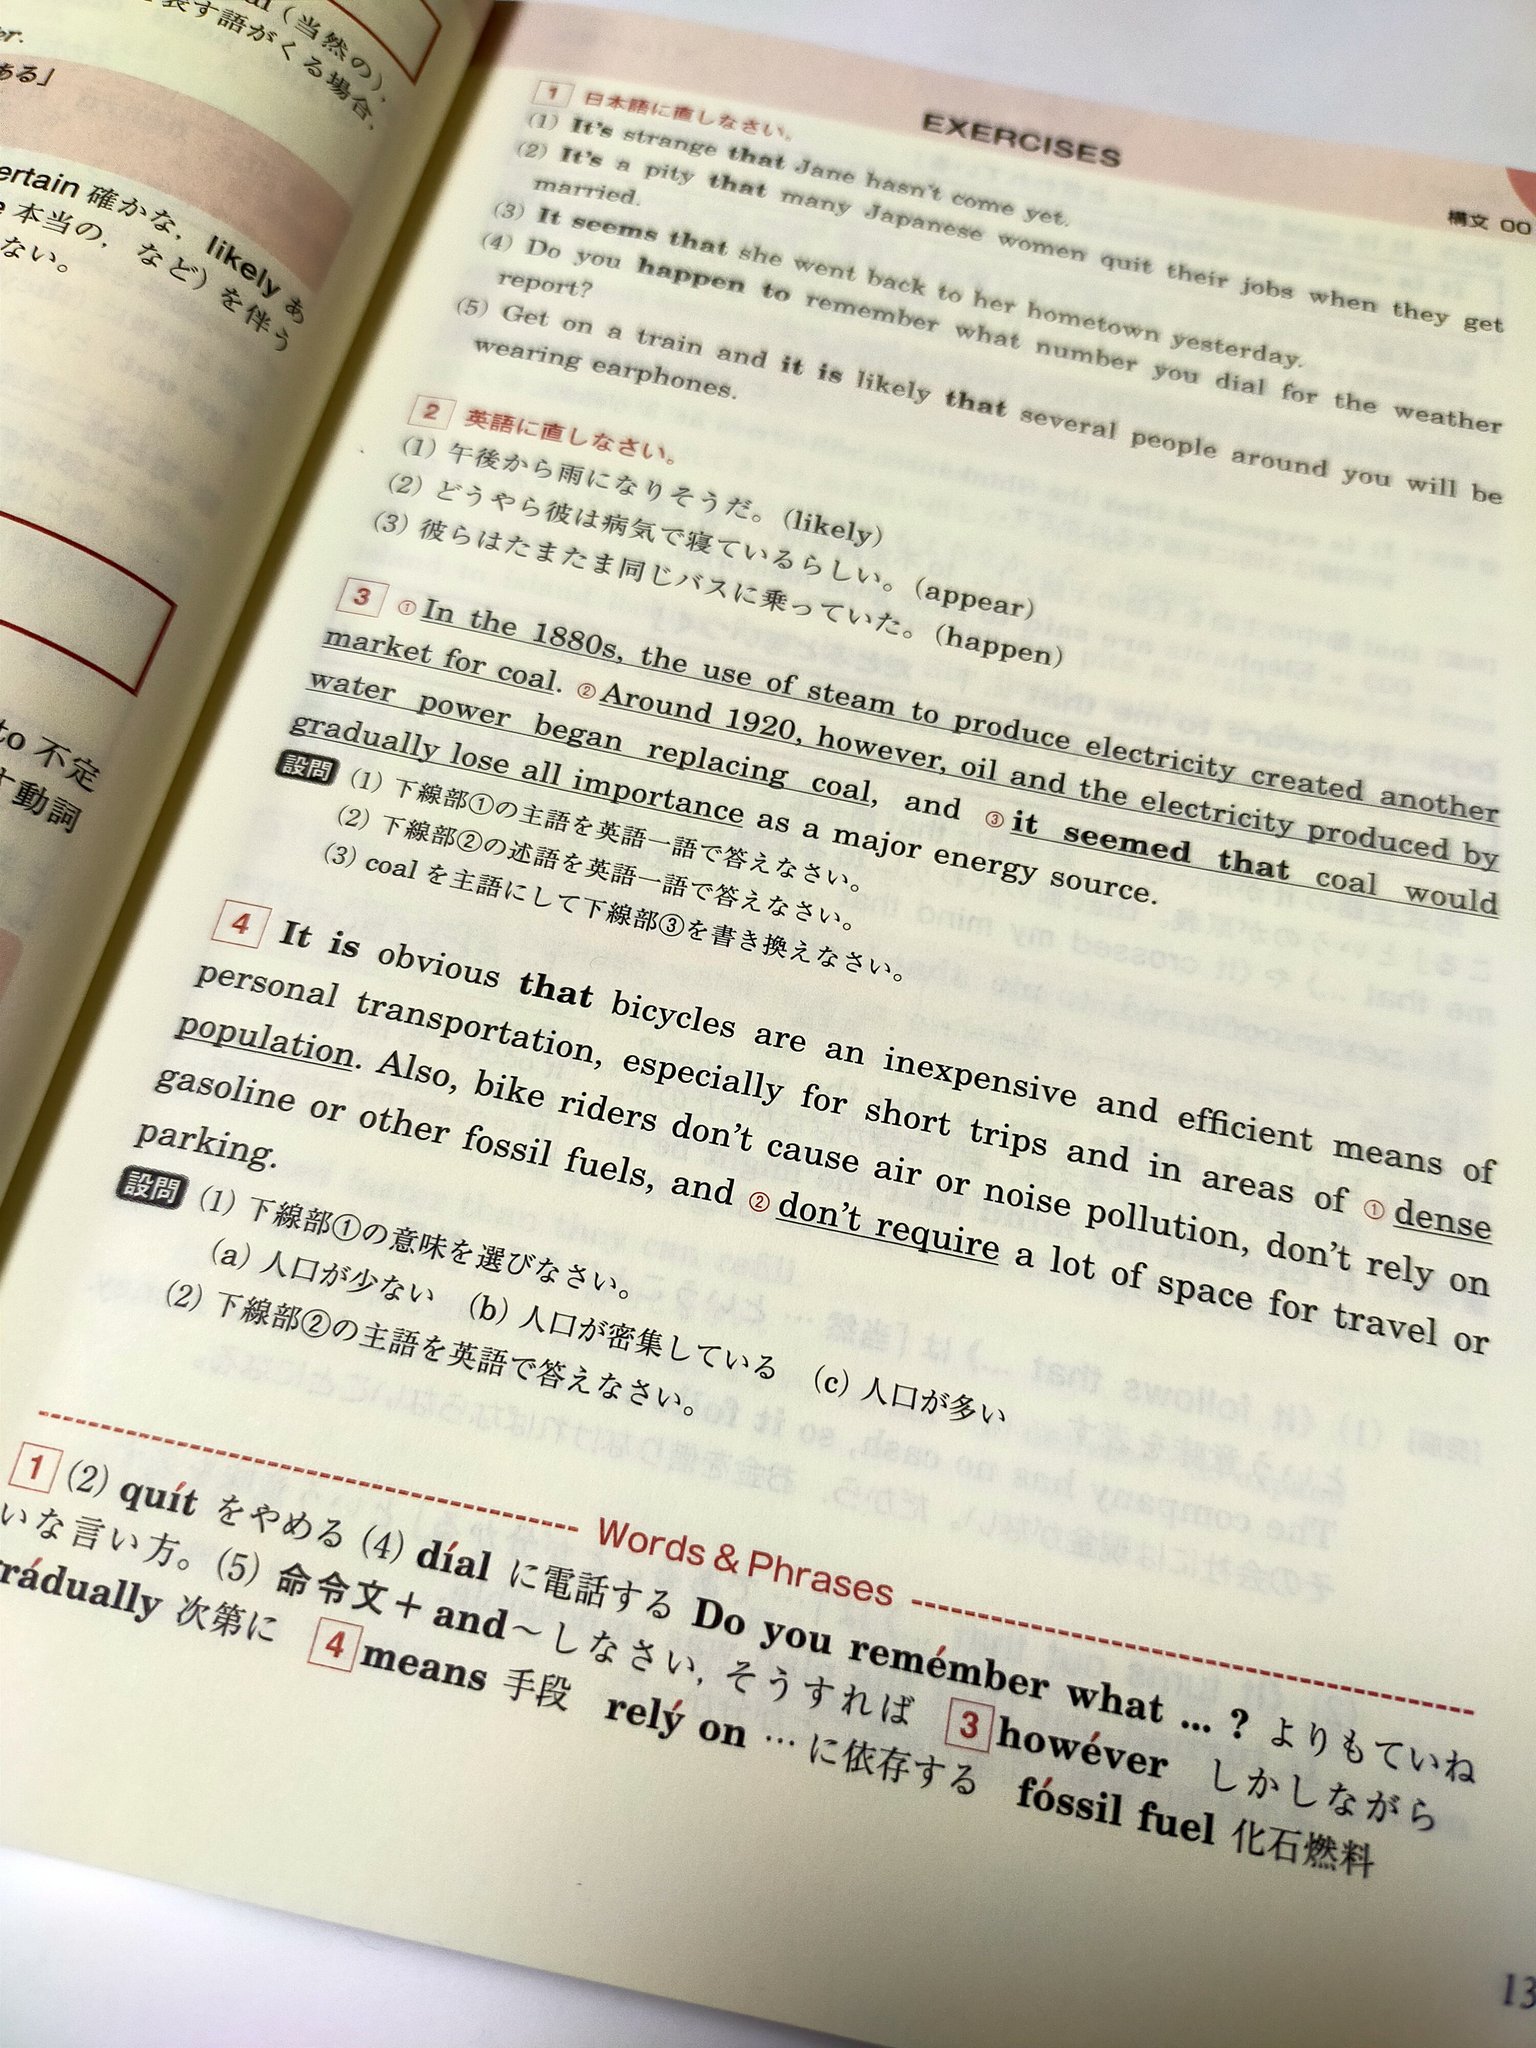 (当然の),
表す語がくる場合,
er.
ある」
ertain 確かな, likely あ
本当の, など) を伴う
ない。
to 不定
す動詞
EXERCISES
構文 00
1 日本語に直しなさい。
(1) It's strange that Jane hasn't come yet.
(2) It's a pity that many Japanese women quit their jobs when they get
married.
(3) It seems that she went back to her hometown yesterday.
(4) Do you happen to remember what number you dial for the weather
report?
(5) Get on a train and it is likely that several people around you will be
wearing earphones.
2 英語に直しなさい。
(1) 午後から雨になりそうだ。(likely)
(2) どうやら彼は病気で寝ているらしい。(appear)
(3) 彼らはたまたま同じバスに乗っていた。(happen)
3 ①In the 1880s, the use of steam to produce electricity created another
market for coal. ②Around 1920, however, oil and the electricity produced by
water power began replacing coal, and ③it seemed that coal would
gradually lose all importance as a major energy source.
設問 (1) 下線部①の主語を英語一語で答えなさい。
(2) 下線部②の述語を英語一語で答えなさい。
(3) coal を主語にして下線部③を書き換えなさい。
4 It is obvious that bicycles are an inexpensive and efficient means of
personal transportation, especially for short trips and in areas of ①dense
population. Also, bike riders don't cause air or noise pollution, don't rely on
gasoline or other fossil fuels, and ②don't require a lot of space for travel or
parking.
設問 (1) 下線部①の意味を選びなさい。
(a) 人口が少ない (b) 人口が密集している (c) 人口が多い
(2) 下線部②の主語を英語で答えなさい。
Words & Phrases
1 (2) quít をやめる (4) díal に電話する Do you remémber what ... ? よりもていね
いな言い方。(5) 命令文＋and～しなさい, そうすれば 3 howéver しかしながら
rádually 次第に 4 means 手段 relý on … に依存する fóssil fuel 化石燃料
13